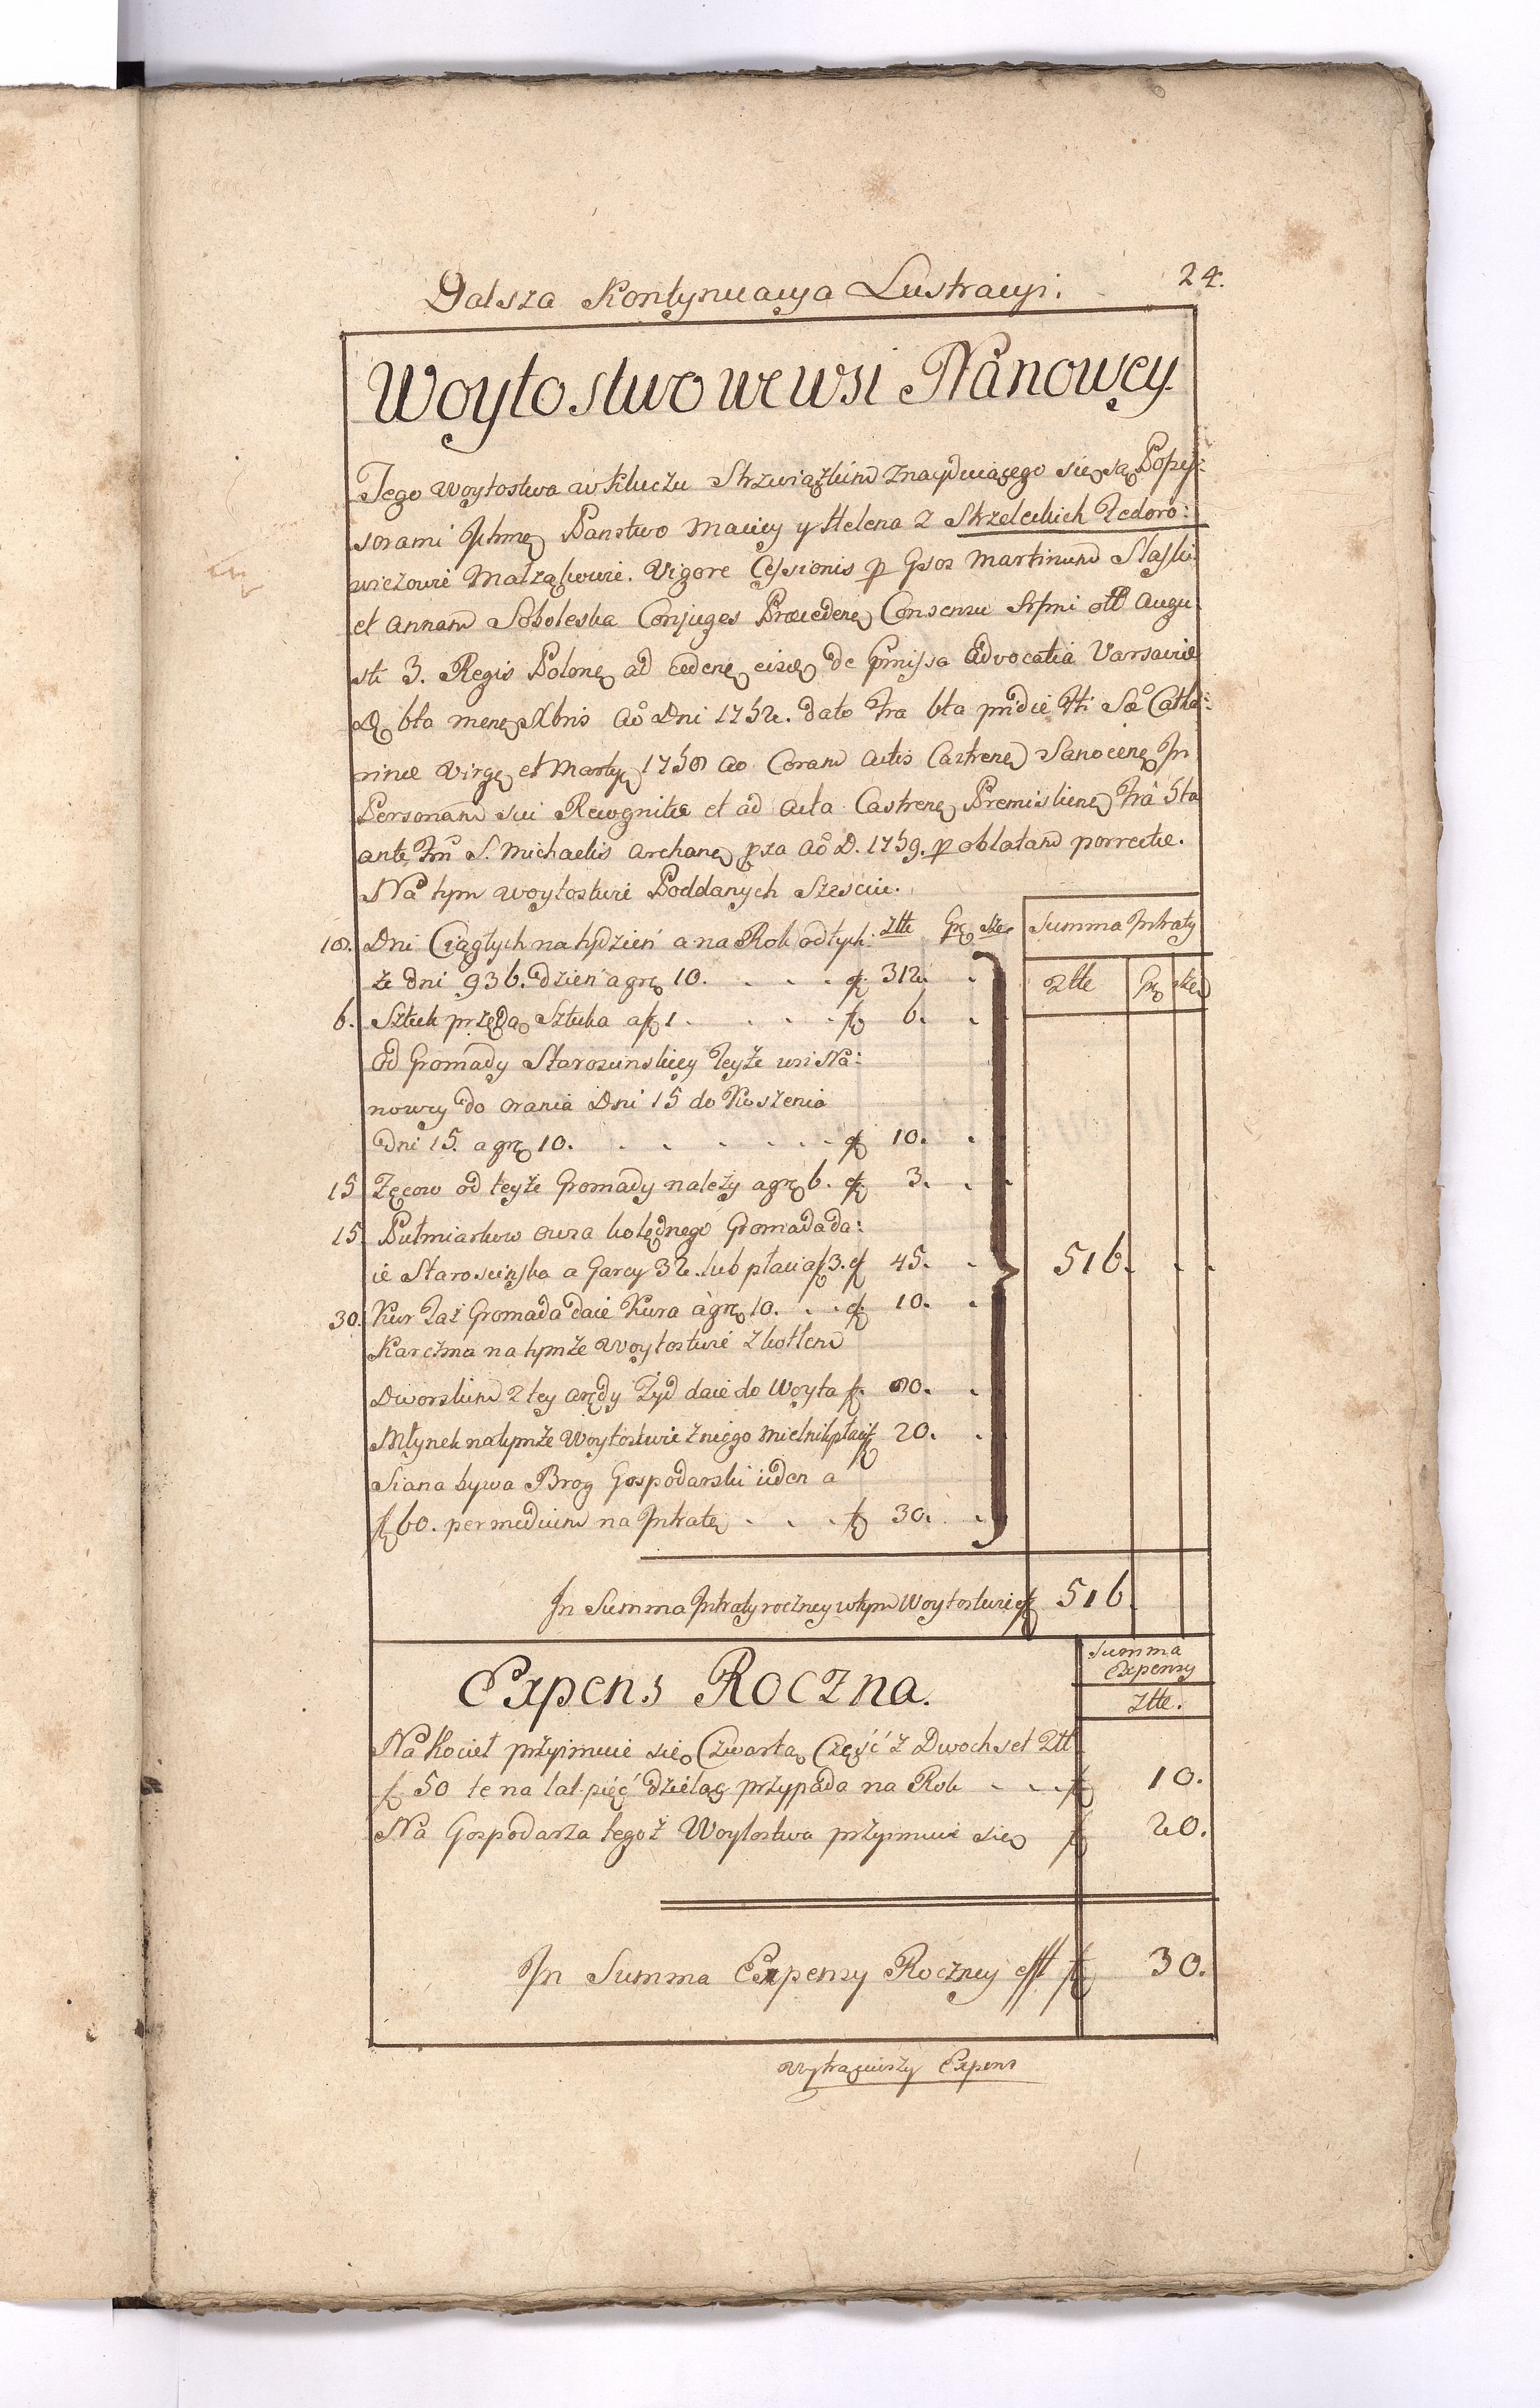 Dalsza Kontynuacya Lustracyi.
24.
Woytostwo we wsi Nanowey
Tego woytostwa w Kluczu Strzwiązkim znayduiącego się są Possej:
sorami Jchmę Panstwo Maciey y Helena z Strzeleckich Fedoro:
wiczowie Małżąkowie. Vigore Cessionis p Gsos Martinum Slaski
et Annam Soboleska Conjuges Præcedenę Consensu Srsmi olł Augu
sti 3. Regis Polonę ad cedenę eisdę de pmissa Advocatia Varsaviæ
Dę bta menę Xbris Aō Dni 1752. dato
rinæ Virgę et Martyę 1758 ao Coram actis Castrenę Sanocenę In
Personam sui Recognitæ et ad acta Castrenę Premislienę fra 5ta
ante S. Michaelis Archanę pxa Aō D. 1759. p oblatam porrectæ.
Na tym woytostwie Poddanych Szesciu.
18. Dni Ciągłych na tydzień a na Rok od tych: Złłe Grę Sze Summa Jntraty
że dni 936. dzień a grę 10. . . . ƒ 312. . Złłe Grę Sze
6. Sztuk przędą Sztuka a ƒ 1 . . . . ƒ 6. .
Od Gromady Staroscinskiey teyże wsi Na:
nowey do Orania Dni 15 do Koszenia
Dni 15. a grę 10. . . . . . . ƒ 10. .
15 Zęcow od teyże Gromady należy a grę 6. ƒ 3. .
15. Pułmiarkow owsa kolędnego Gromada da:
ie Staroscinska a Garcy 32. lub płaci a ƒ 3. ƒ 45. . 516. . .
30. Kur Taż Gromada daie Kura a grę 10. . . ƒ 10. .
Karczma na tymże Woytostwie z kotłem
Dworskim z tey arędy Żyd daie do Woyta ƒ. 80. .
Młynek na tymże Woytostwie z niego Mielnik płaci ƒ 20. .
Siana bywa Brog Gospodarski ieden a
ƒ 60. per medium na Jntratę . . . ƒ 30. .
Jn Summa Jntraty roczney w tym Woytostwie ƒ 516.
Expens Roczna.
Summa
Expensy
Złłe.
Na Kocieł przyimuie się Czwarta Część z Dwochset Złł
ƒ 50 te na lat pięć dzieląc przypada na Rok . . . ƒ 10.
Na Gospodarza tegoż Woytostwa przyimuie się ƒ 20.
Jn Summa Expensy Roczney esst ƒ 30.
Wytrąciwszy Expens